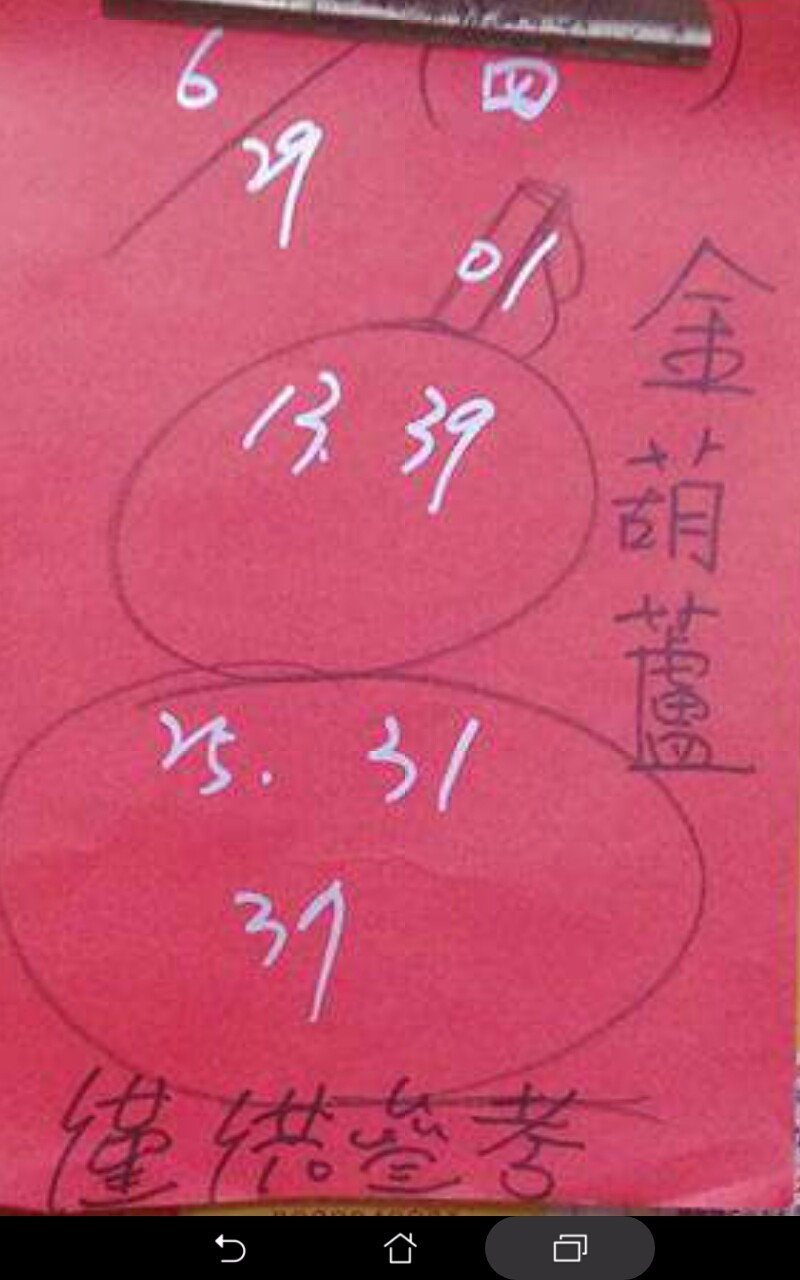 6/29 (四)
01
金葫蘆
13. 39
25. 31
37
僅供參考